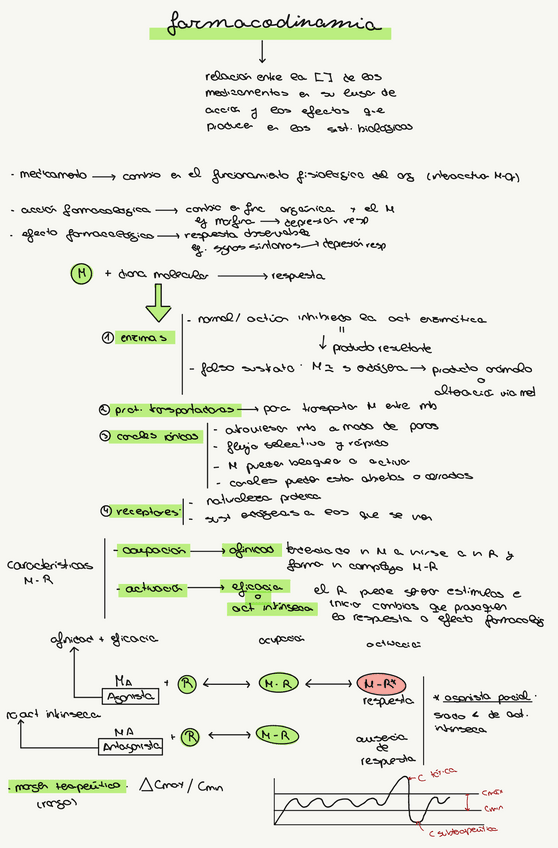 farmacodinamia
relación entre la [ ] de los
medicamentos en su lugar de
acción y los efectos que
producen en los sist. biológicos
· medicamento → cambio en el funcionamiento fisiológico del org (interacción M-R)
· acción farmacológica → cambio en func orgánica y el M
ej morfina → depresión resp
· efecto farmacológico → respuesta observable
ej. signos síntomas → depresión resp
M + diana molecular → respuesta
① enzimas
- normal/ actúan inhibiendo la act enzimática
"
↓ producto resultante
- falso sustrato: M ≃ s endógena → producto anómalo
o
alteración via met
② prot. transportadoras → para transportar M entre mb
③ canales iónicos
- atraviesan mb a modo de poros
- flujo selectivo y rápido
- M pueden bloquear o activar
- canales pueden estar abiertos o cerrados
④ receptores:
- naturaleza proteica
- sust endógenas a los que se unen
Características
M-R
- ocupación → afinidad tendencia de un M a unirse a un R y
formar un complejo M-R
- activación → eficacia
o
act intrínseca
el R puede sufrir estímulos e
iniciar cambios que provoquen
la respuesta o efecto farmacológ
afinidad + eficacia
ocupación
activación
MA
Agonista
+ R ↔ M-R ↔ M-R*
respuesta
* agonista parcial.
grado < de act.
intrínseca
no act intrínseca
MA
Antagonista
+ R ↔ M-R
ausencia
de
respuesta
· margen terapéutico: Δ Cmax / Cmin
(rango)
C tóxica
Cmax
Cmin
C subterapéutica